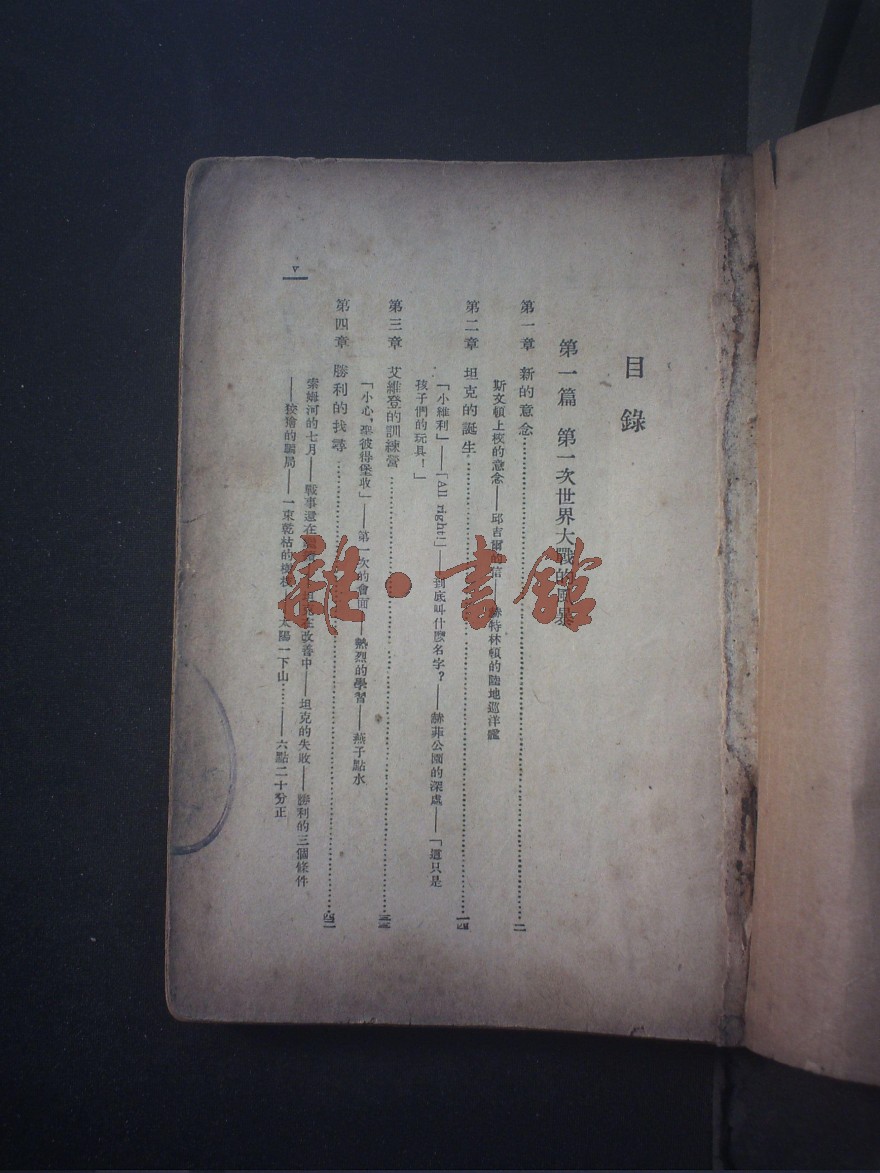 目錄
第一篇 第一次世界大戰的風暴
第一章 新的意念 二
斯文頓上校的意念——邱吉爾的信——赫特林頓的陸地巡洋艦
第二章 坦克的誕生 一四
「小維利」——「All right!」——到底叫什麼名字？——赫菲公園的深處——「這只是
孩子們的玩具！」
第三章 艾維登的訓練營
「小心，聖彼得堡收」——第一次的會面——熱烈的學習——燕子點水
第四章 勝利的找尋 四二
索姆河的七月——戰事還在 在改善中——坦克的失敗——勝利的三個條件
——狡獪的騙局——一束乾枯的 太陽一下山……——六點二十分正
V
雜·書館